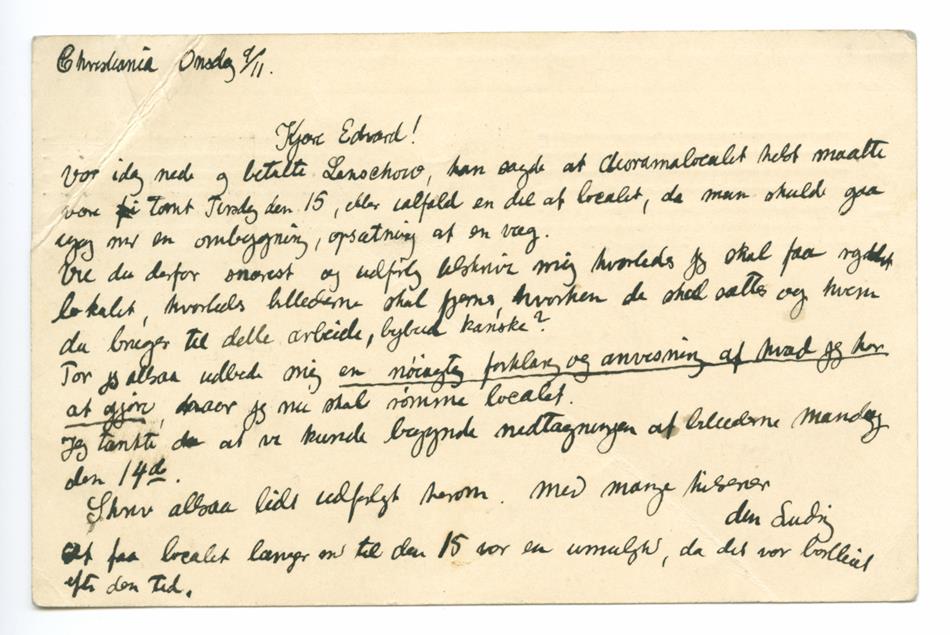 Christiania Onsdag 9/11.
Kjære Edvard!
Var idag ned og betalte Lenschow, han sagde at dioramalocalet helst maatte
være tomt Tirsdag den 15, eller ialfald en del af localet, da man skulde gaa
igang med en ombygning, opsætning af en væg.
Vil du derfor snarest og udførlig tilskrive mig hvorledes jeg skal faa ryddet
lokalet, hvorledes billederne skal fjernes hvorhen de skal sættes og hvem
du bruger til dette arbeide, bybud kanske?
Tør jeg altsaa udbede mig en nöiagtig forklaring og anvisning af hvad jeg har
at gjøre, naar jeg nu skal römme localet.
Jeg tænkte at vi kunde begynde nedtagningen af billederne mandag
den 14de.
Skriv altsaa lidt udførligt herom. Med mange hilsener
din Ludvig
At faa localet længer end til den 15 var en umulighed, da det var bortleiet
efter den tid.